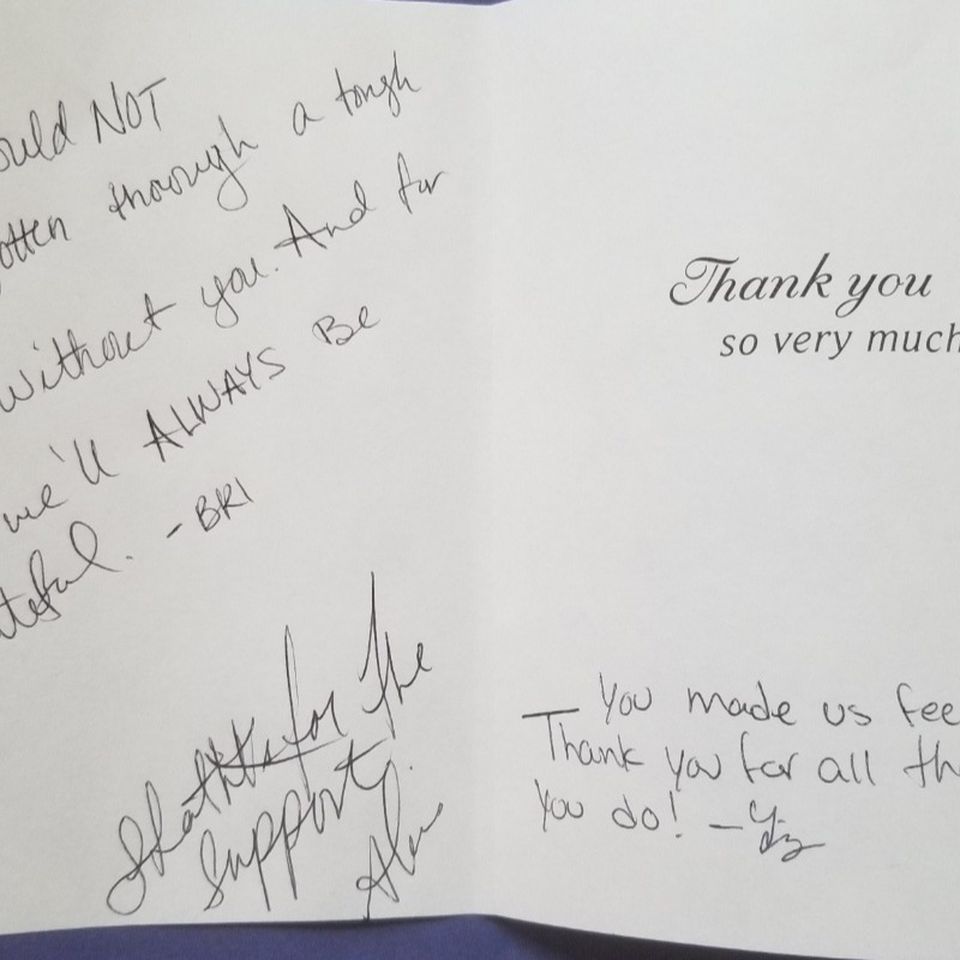 ould NOT
otten thorough a tough
without you. And for
we'll ALWAYS Be
teful. - BRI
for the
support.
Thank you
so very much
You made us fee
Thank you for all th
you do! - Liz